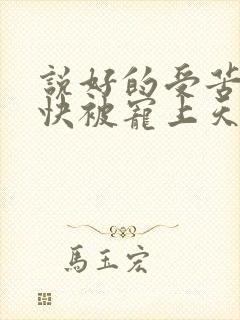 說好的受苦
快被寵上天
馬玉宏